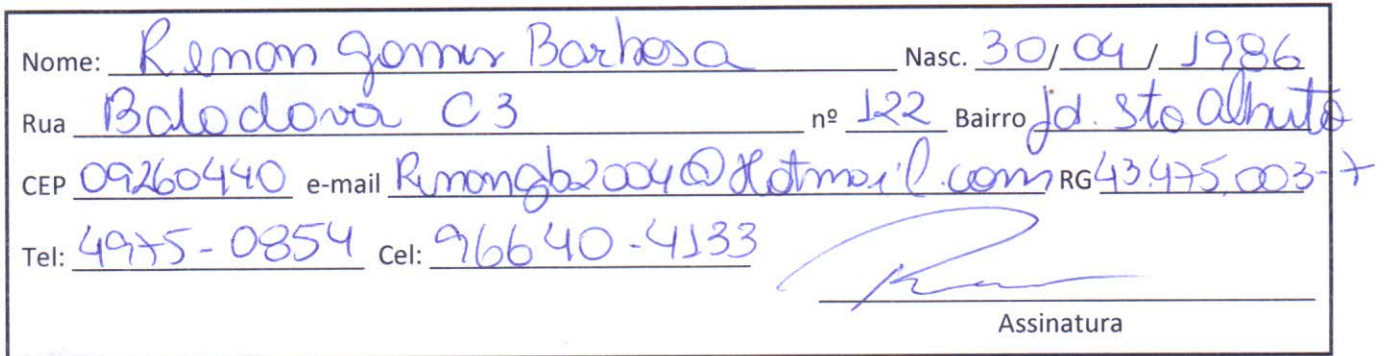 Nome: Renan Gomes Barbosa Nasc. 30/04/1986
Rua Balodova C3 nº 122 Bairro Jd. Sto Alberto
CEP 09260440 e-mail Renangb2004@Hotmail.com RG 43.475.003-7
Tel: 4975-0854 Cel: 96640-4133
Assinatura